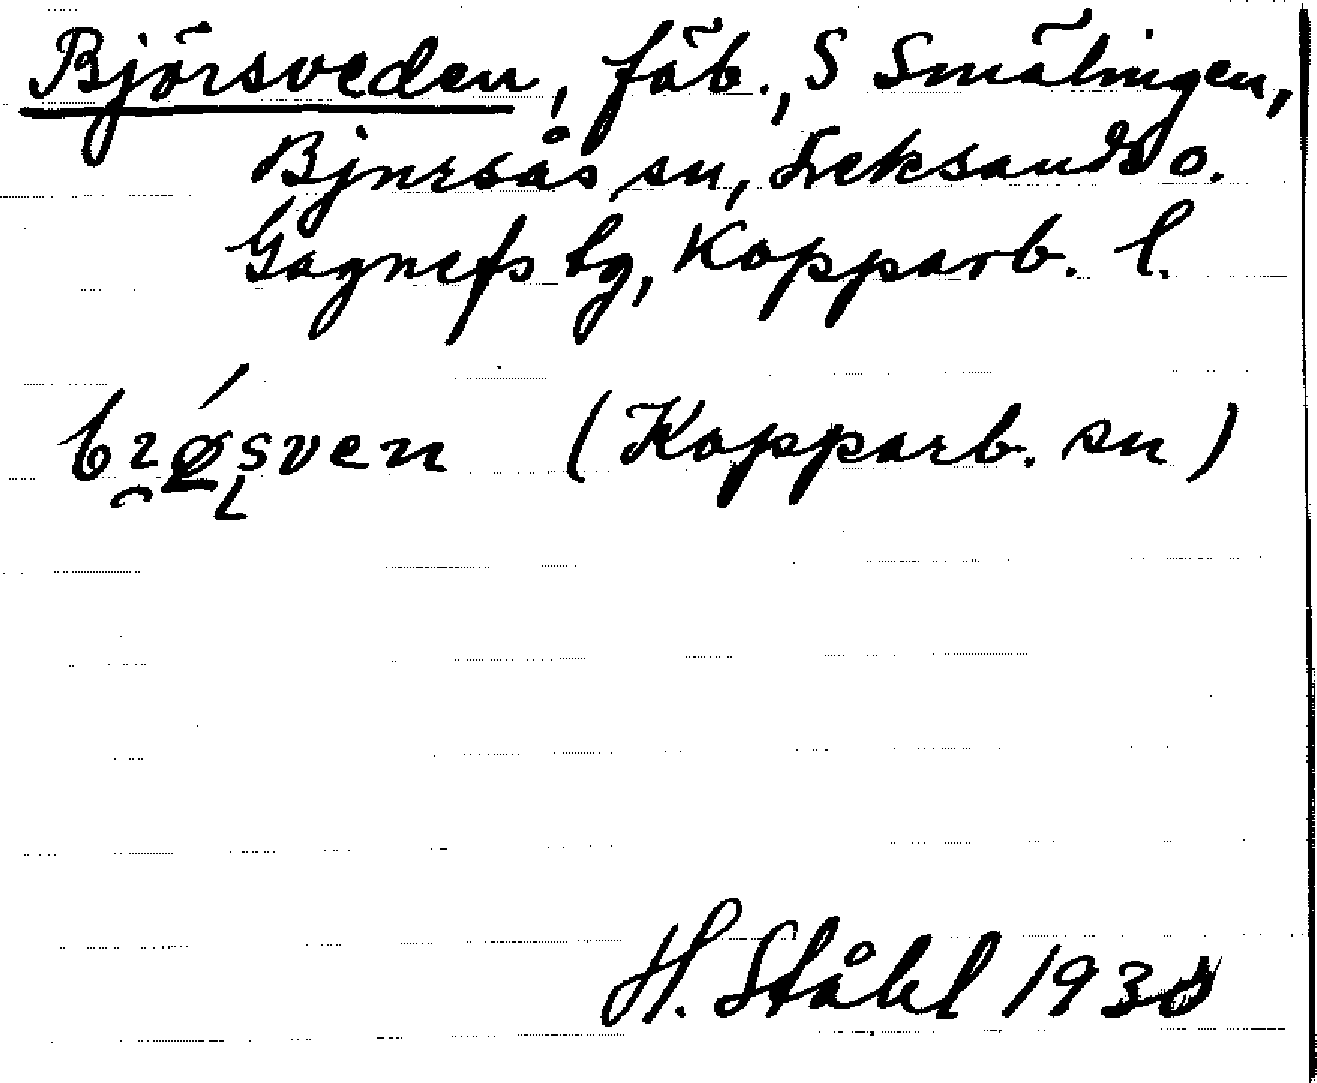 Björsveden, fäb., S Smälingen,
Bjursås sn, Leksands o.
Gagnefs tg, Kopparb. l.
(Kopparb. sn)
H. Ståhl 193